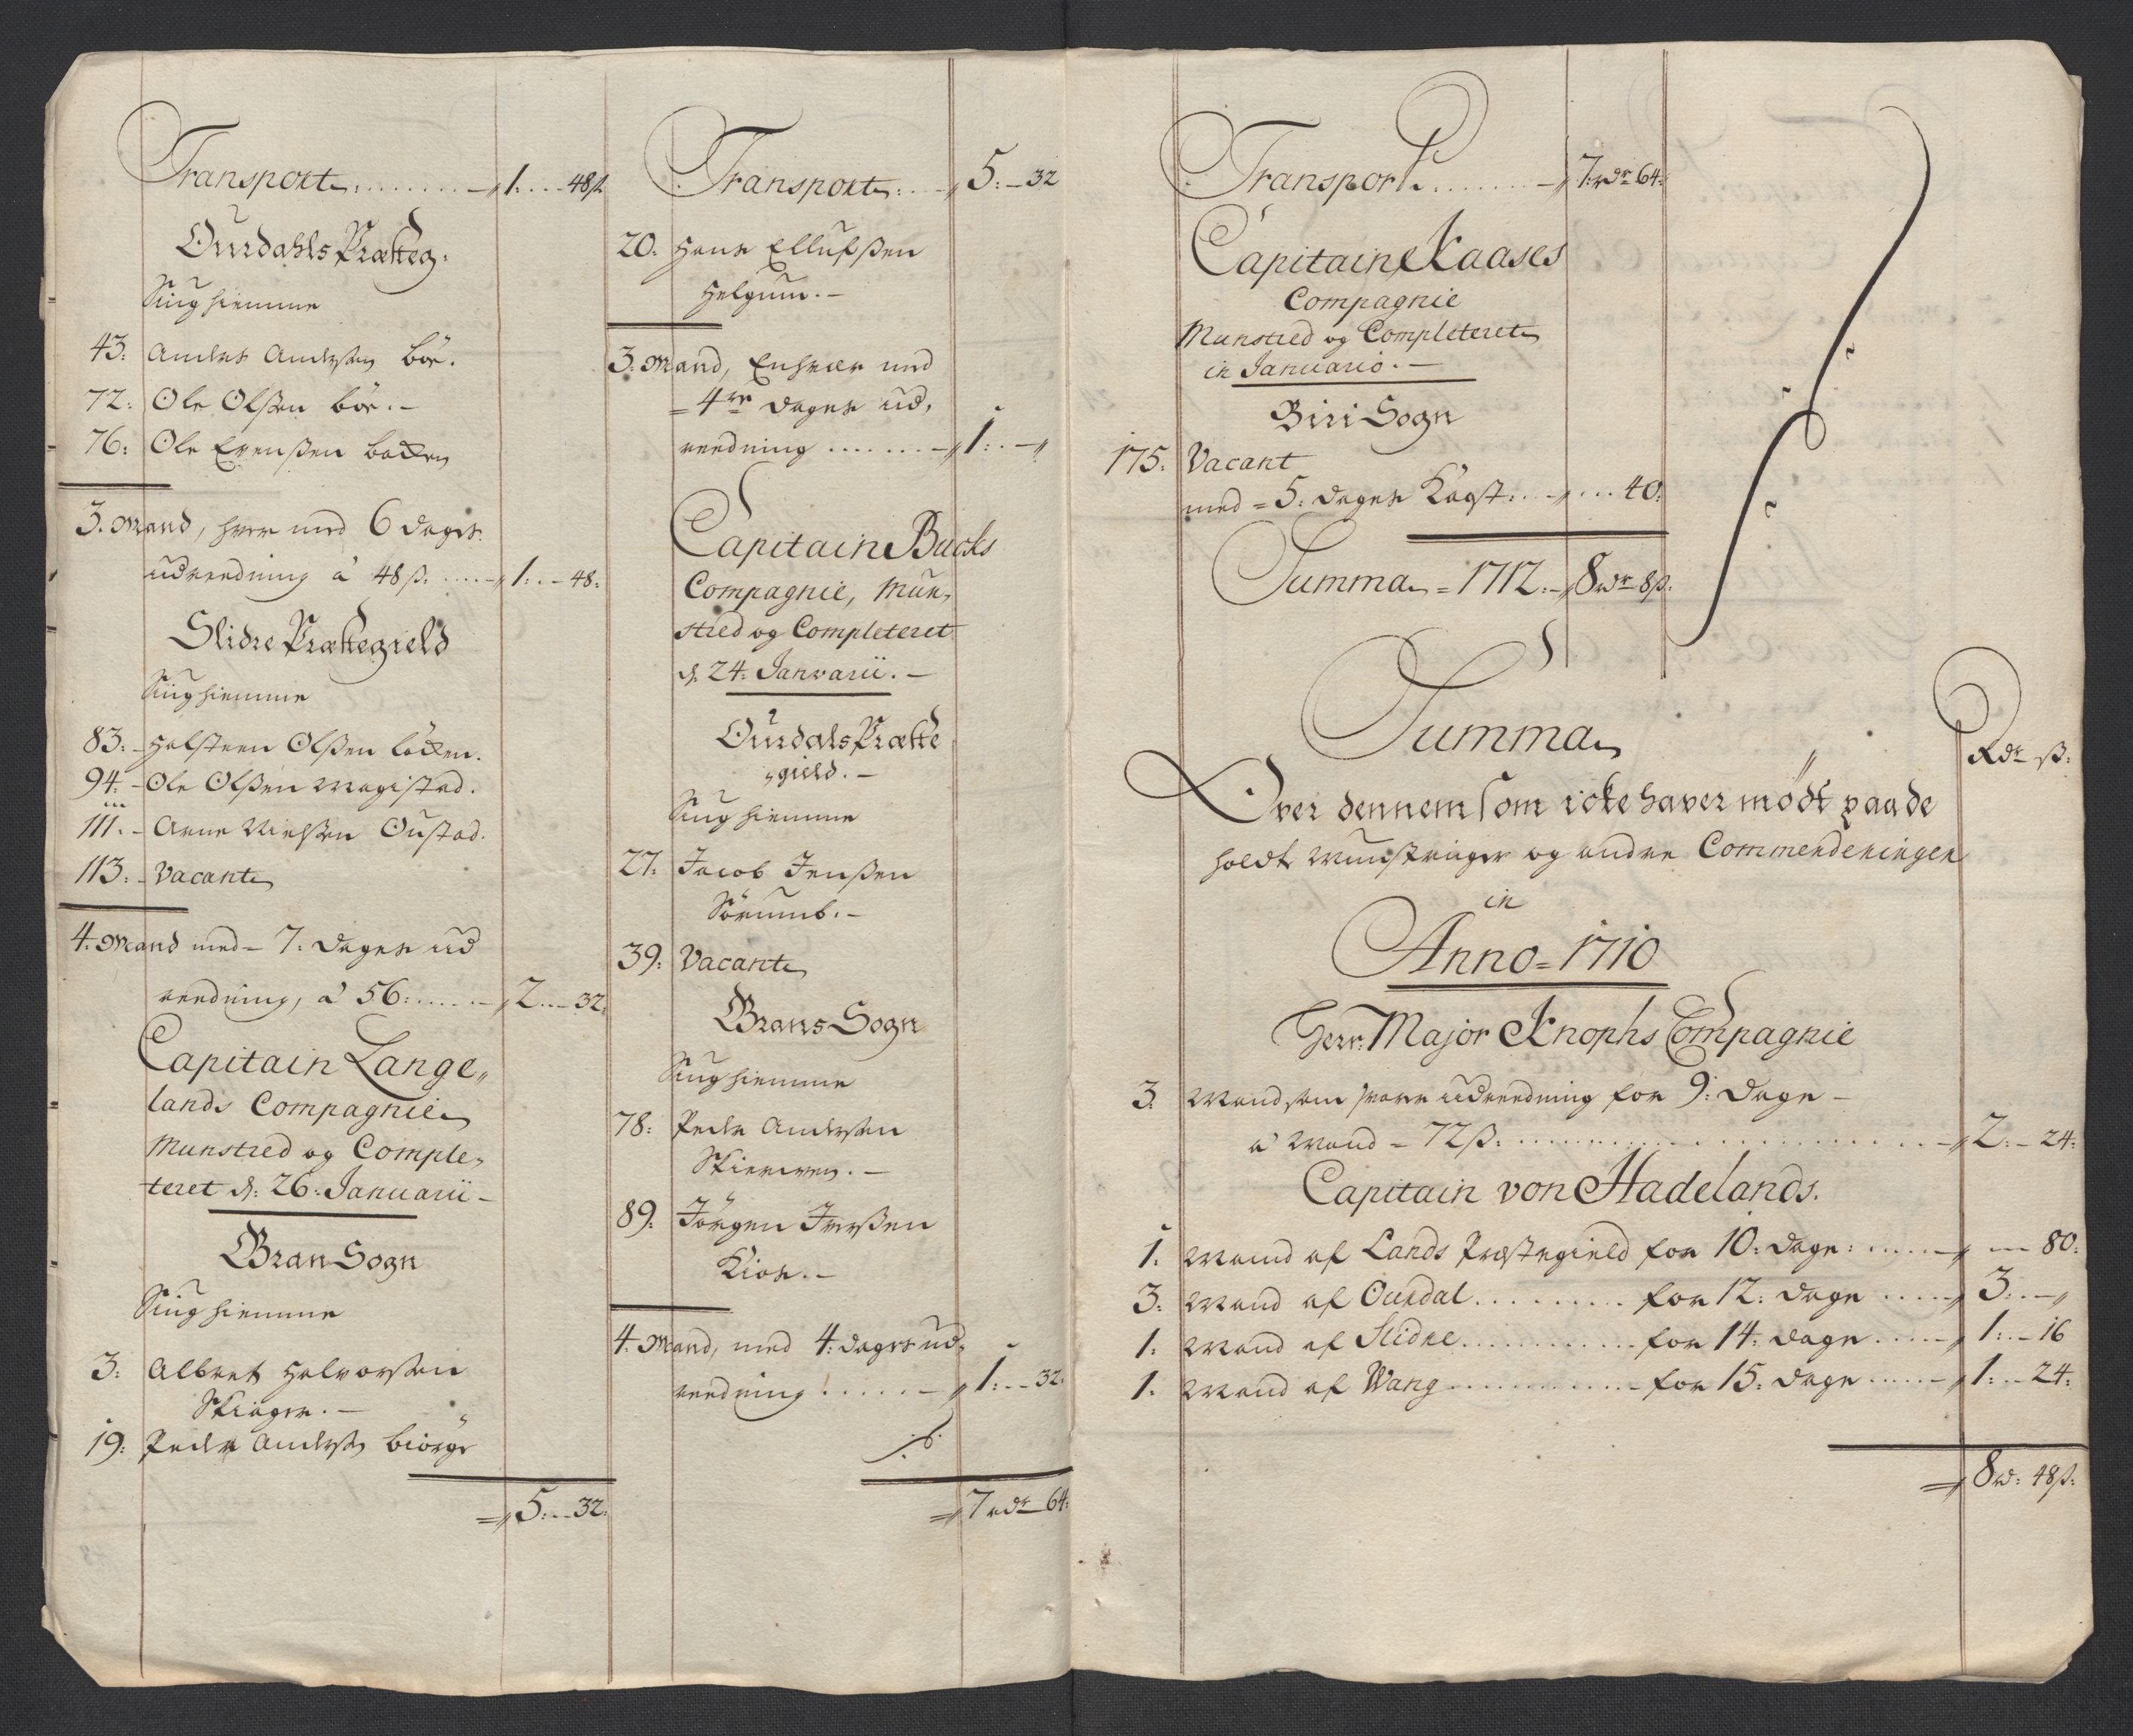 Transport. . . . . . . . . 1: . . . 48ß
Ourdahls Præsteg:
Siug hiemme
43: Anders Andersen Böe.
72: Ole Olßen böe. –
76: Ole Evenßen backen
3. Mand, hver med 6 dages
udreedning á 48ß. . . . . 1: . – 48:
Slidre Præstegield
Siug hiemme
83: Halsteen Olßen løcken.
94: Ole Olßen Magistad.
111. – Arne Nielßen Oustad.
113. – Vacant
4. Mand med – 7. dages ud
reedning, á 56: . . . . . 2. . . – 32:
Capitain Lange„
lands Compagnie
Munstred og Comple„
teret d: 26: Januarii –
Gran Sogn
Siug hiemme
3: Albret Halvorßen
19: Peder Andersen Biörge
5: . . – 32:
Transport: . . . 5: – 32
20: Hans Ellufßen
Helgum. –
3. Mand, Enhver med
= 4re dages ud„
reedning . . . . . . . 1: . –
Capitain Bucks
Compagnie, Mun„
stred og Completeret
d. 24: Janvarii. –
Ourdals Præste
„gield. –
Siug hiemme
27: Jacob Jenßen
Sørumb. –
39: Vacant
Grans Sogn
Siug hiemme
78: Peder Andersen
89: Jörgen Iverßen
Kios. –
4. Mand, med 4: dages ud„
reedning . . . . . . 1: . . – 32:
7 rdr 64:
Transport. . . . . . . 7 rdr 64:
Capitain Kaases
Compagnie
Munstred og Completeret
in Januario. –
Biri Sogn
175. Vacant
med = 5: dages Kaast: . . . . . . 40:
Summa = 1712. – 8 rdr 8ß.
Summa
Rdr ß:
Over dennem som icke haver mödt paa de
holdt Munstringer og andre Commenderingen
in
Anno = 1710
Herr: Major Knophs Compagnie
3. Mand som svare udreedning for 9: dage –
á Mand = 72ß. . . . . . . . . . . . . . . 2: – 24:
Capitain von Hadelands.
1. Mand af Lands Præstegield for 10: dage: . . . . . – 80:
3: Mand af Ourdal . . . . . . . . for 12: dage . . . . . 3: . –
1. Mand af Slidre . . . . . . . . for 14: dage . . . . . 1: . – 16
1. Mand af Wang . . . . . . . . for 15: dage . . . . . 1: . – 24:
8 rd: 48ß: